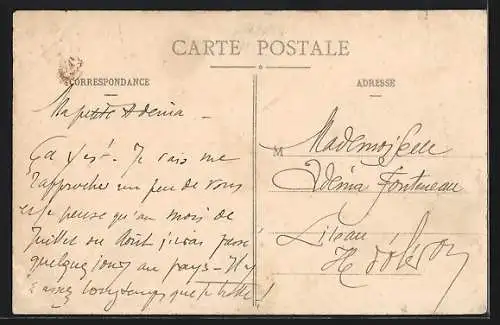 CARTE POSTALE
CORRESPONDANCE
ADRESSE
Ma petite Adenia
Ça y est! Je vais me
rapprocher un peu de vous
et je pense qu'au mois de
Juillet ou Août j'irai passer
quelques jours au pays - Il y
a assez longtemps que je
M Mademoiselle
Adenia Fonteneau
I. d'Oléron